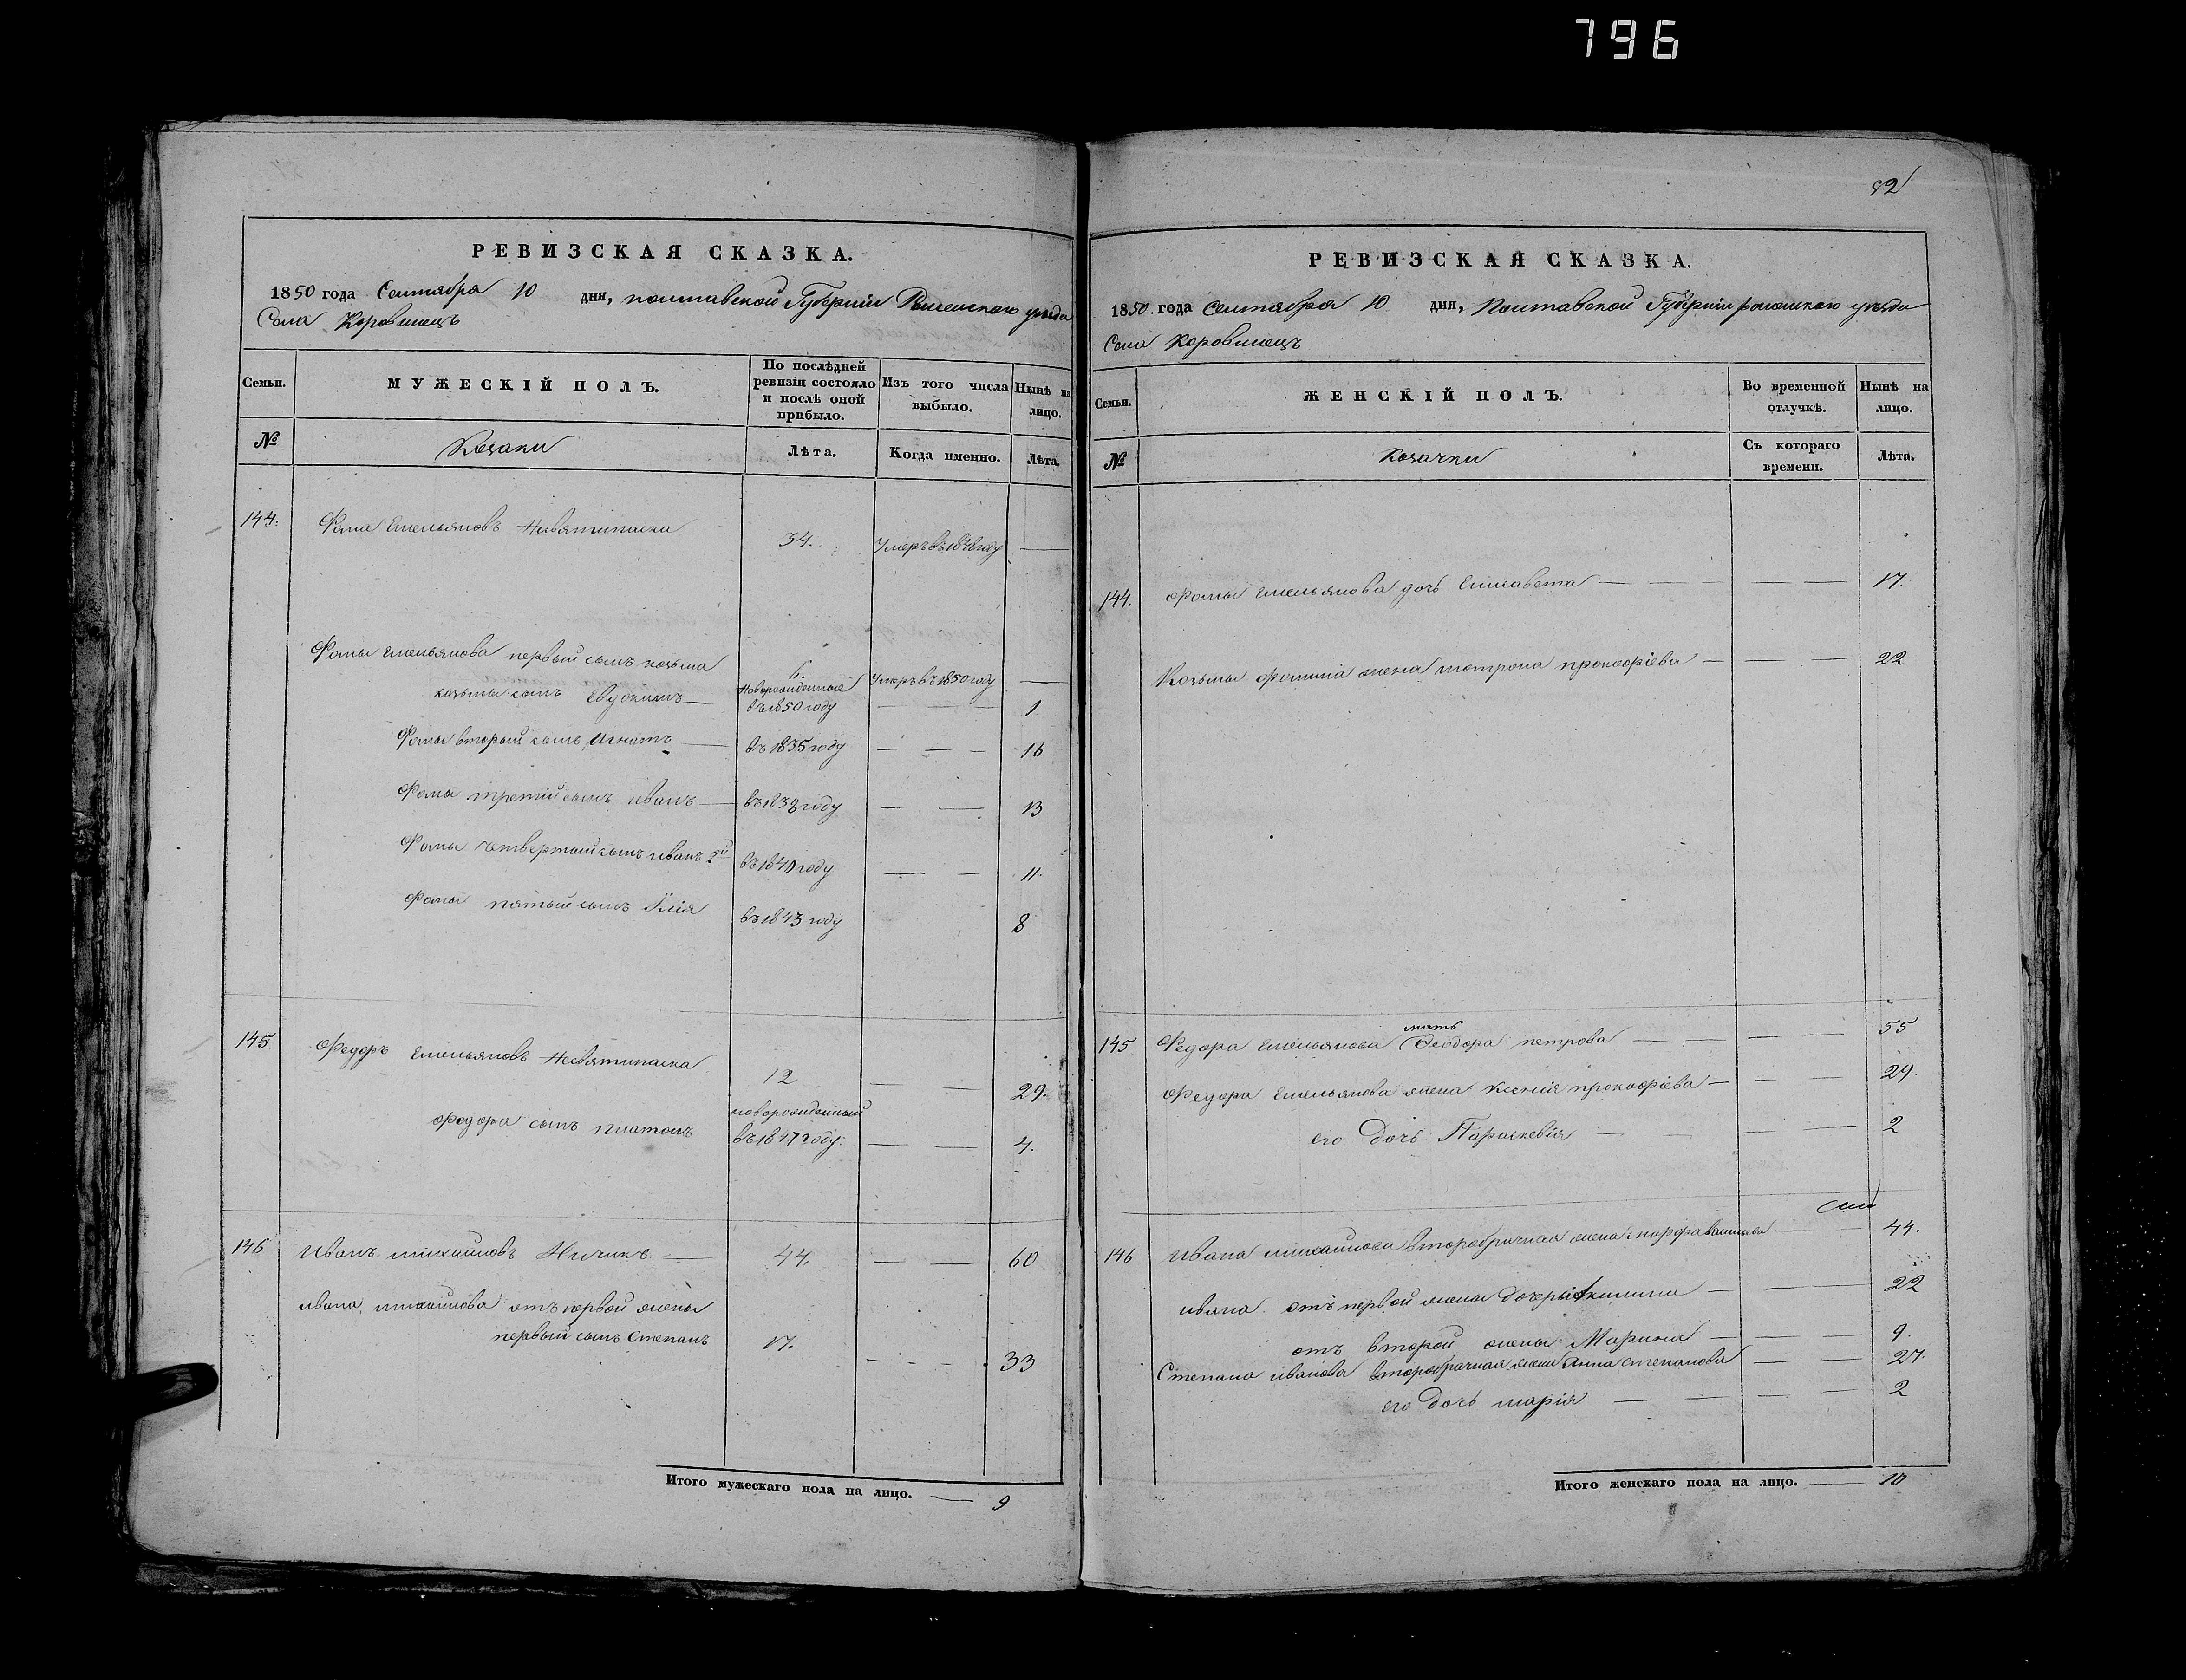 796
82
РЕВИЗСКАЯ СКАЗКА.
1850 года Сентября 10 дня, полтавской Губерніи Роменскаго уезда
Села Коровинецъ
Семьи.
МУЖЕСКІЙ ПОЛЪ.
По послѣдней ревизіи состояло и послѣ оной прибыло.
Изъ того числа выбыло.
Нынѣ на лицо.
№
Козаки
Лѣта.
Когда именно.
Лѣта.
144. Фома Емельяновъ Несвятипаска 34. Умеръ въ 1848 году —
Фомы Емельянова первый сынъ козьма 6. Умеръ въ 1850 году —
козьмы сынъ Евдокимъ — Новорожденные въ 1850 году — — — 1
Фомы вторый сынъ Игнатъ — въ 1835 году — — — 16
Фомы третій сынъ иванъ — въ 1838 году — — 13
Фомы четвертый сынъ иванъ 2й въ 1840 году — — 11.
Фомы пятый сынъ Ілія въ 1843 году 8
145 Федоръ Емельяновъ Несвятипаска 12 — — 29.
федора сынъ платонъ новорожденный въ 1847 году. — — 4.
146 Иванъ михайловъ Ничикъ — 44. — — 60
ивана михайлова отъ первой жены
первый сынъ Степанъ 17. — - - 33
Итого мужескаго пола на лицо. — 9
РЕВИЗСКАЯ СКАЗКА.
1850 года Сентября 10 дня, Полтавской Губерніи роменскаго уезда
Села Коровинецъ
Семьи.
ЖЕНСКІЙ ПОЛЪ.
Во временной отлучкѣ.
Нынѣ на лицо.
№
Козачки
Съ котораго времени.
Лѣта.
144. Фомы Емельянова дочь Елисавета — — — — — 17.
Козьмы Фомина жена мотрона прокофіева — — — 22
145 Федора Емельянова мать Феодора петрова — — — — 55
Федора Емельянова жена Ксенія прокофіева — — — 29.
его дочь Параскевія — — — — 2
146 Ивана михайлова второбрачная жена — 44.
ивана отъ первой жены дочерь Акилина — — — 22
отъ второй жены Марина — — — 9.
Степана иванова второбрачная жена Анна степанова — — 27.
его дочь марія — — — — 2
Итого женскаго пола на лицо. — 10